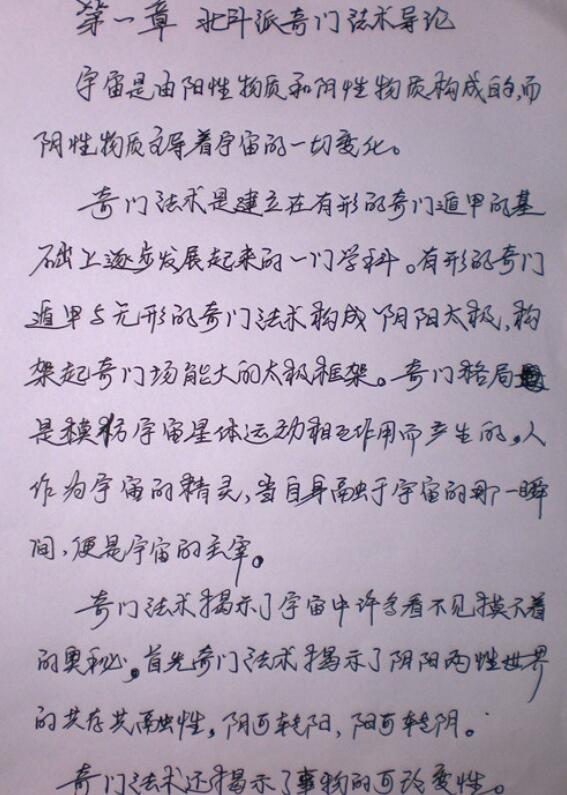 第一章 北斗派奇门法术导论
宇宙是由阳性物质和阴性物质构成的,而
阴性物质主导着宇宙的一切变化。
奇门法术是建立在有形的奇门遁甲的基
础上逐步发展起来的一门学科。有形的奇门
遁甲与无形的奇门法术构成阴阳太极,构
架起奇门场能大的太极框架。奇门格局
是模仿宇宙星体运动相互作用而产生的。人
作为宇宙的精灵,当自身融于宇宙的那一瞬
间,便是宇宙的主宰。
奇门法术揭示了宇宙中许多看不见摸不着
的奥秘。首先奇门法术揭示了阴阳两性世界
的共存共融性,阴可转阳,阳可转阴。
奇门法术还揭示了事物的可改变性。